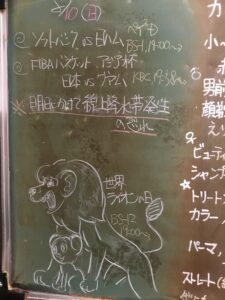 8/10(日)
ソフトバンク vs 日ハム
BS-1 14:00〜
FIBAバスケット アジア杯
日本 vs グアム
※明日にかけて線上降水帯発生
の恐れ
世界
ライオンの日
BS-12
19:00〜
カ
小〜
男前
顔剃
えり
ビューティ
シャンプ
★
トリート
カラー
パーマ
ストレート(